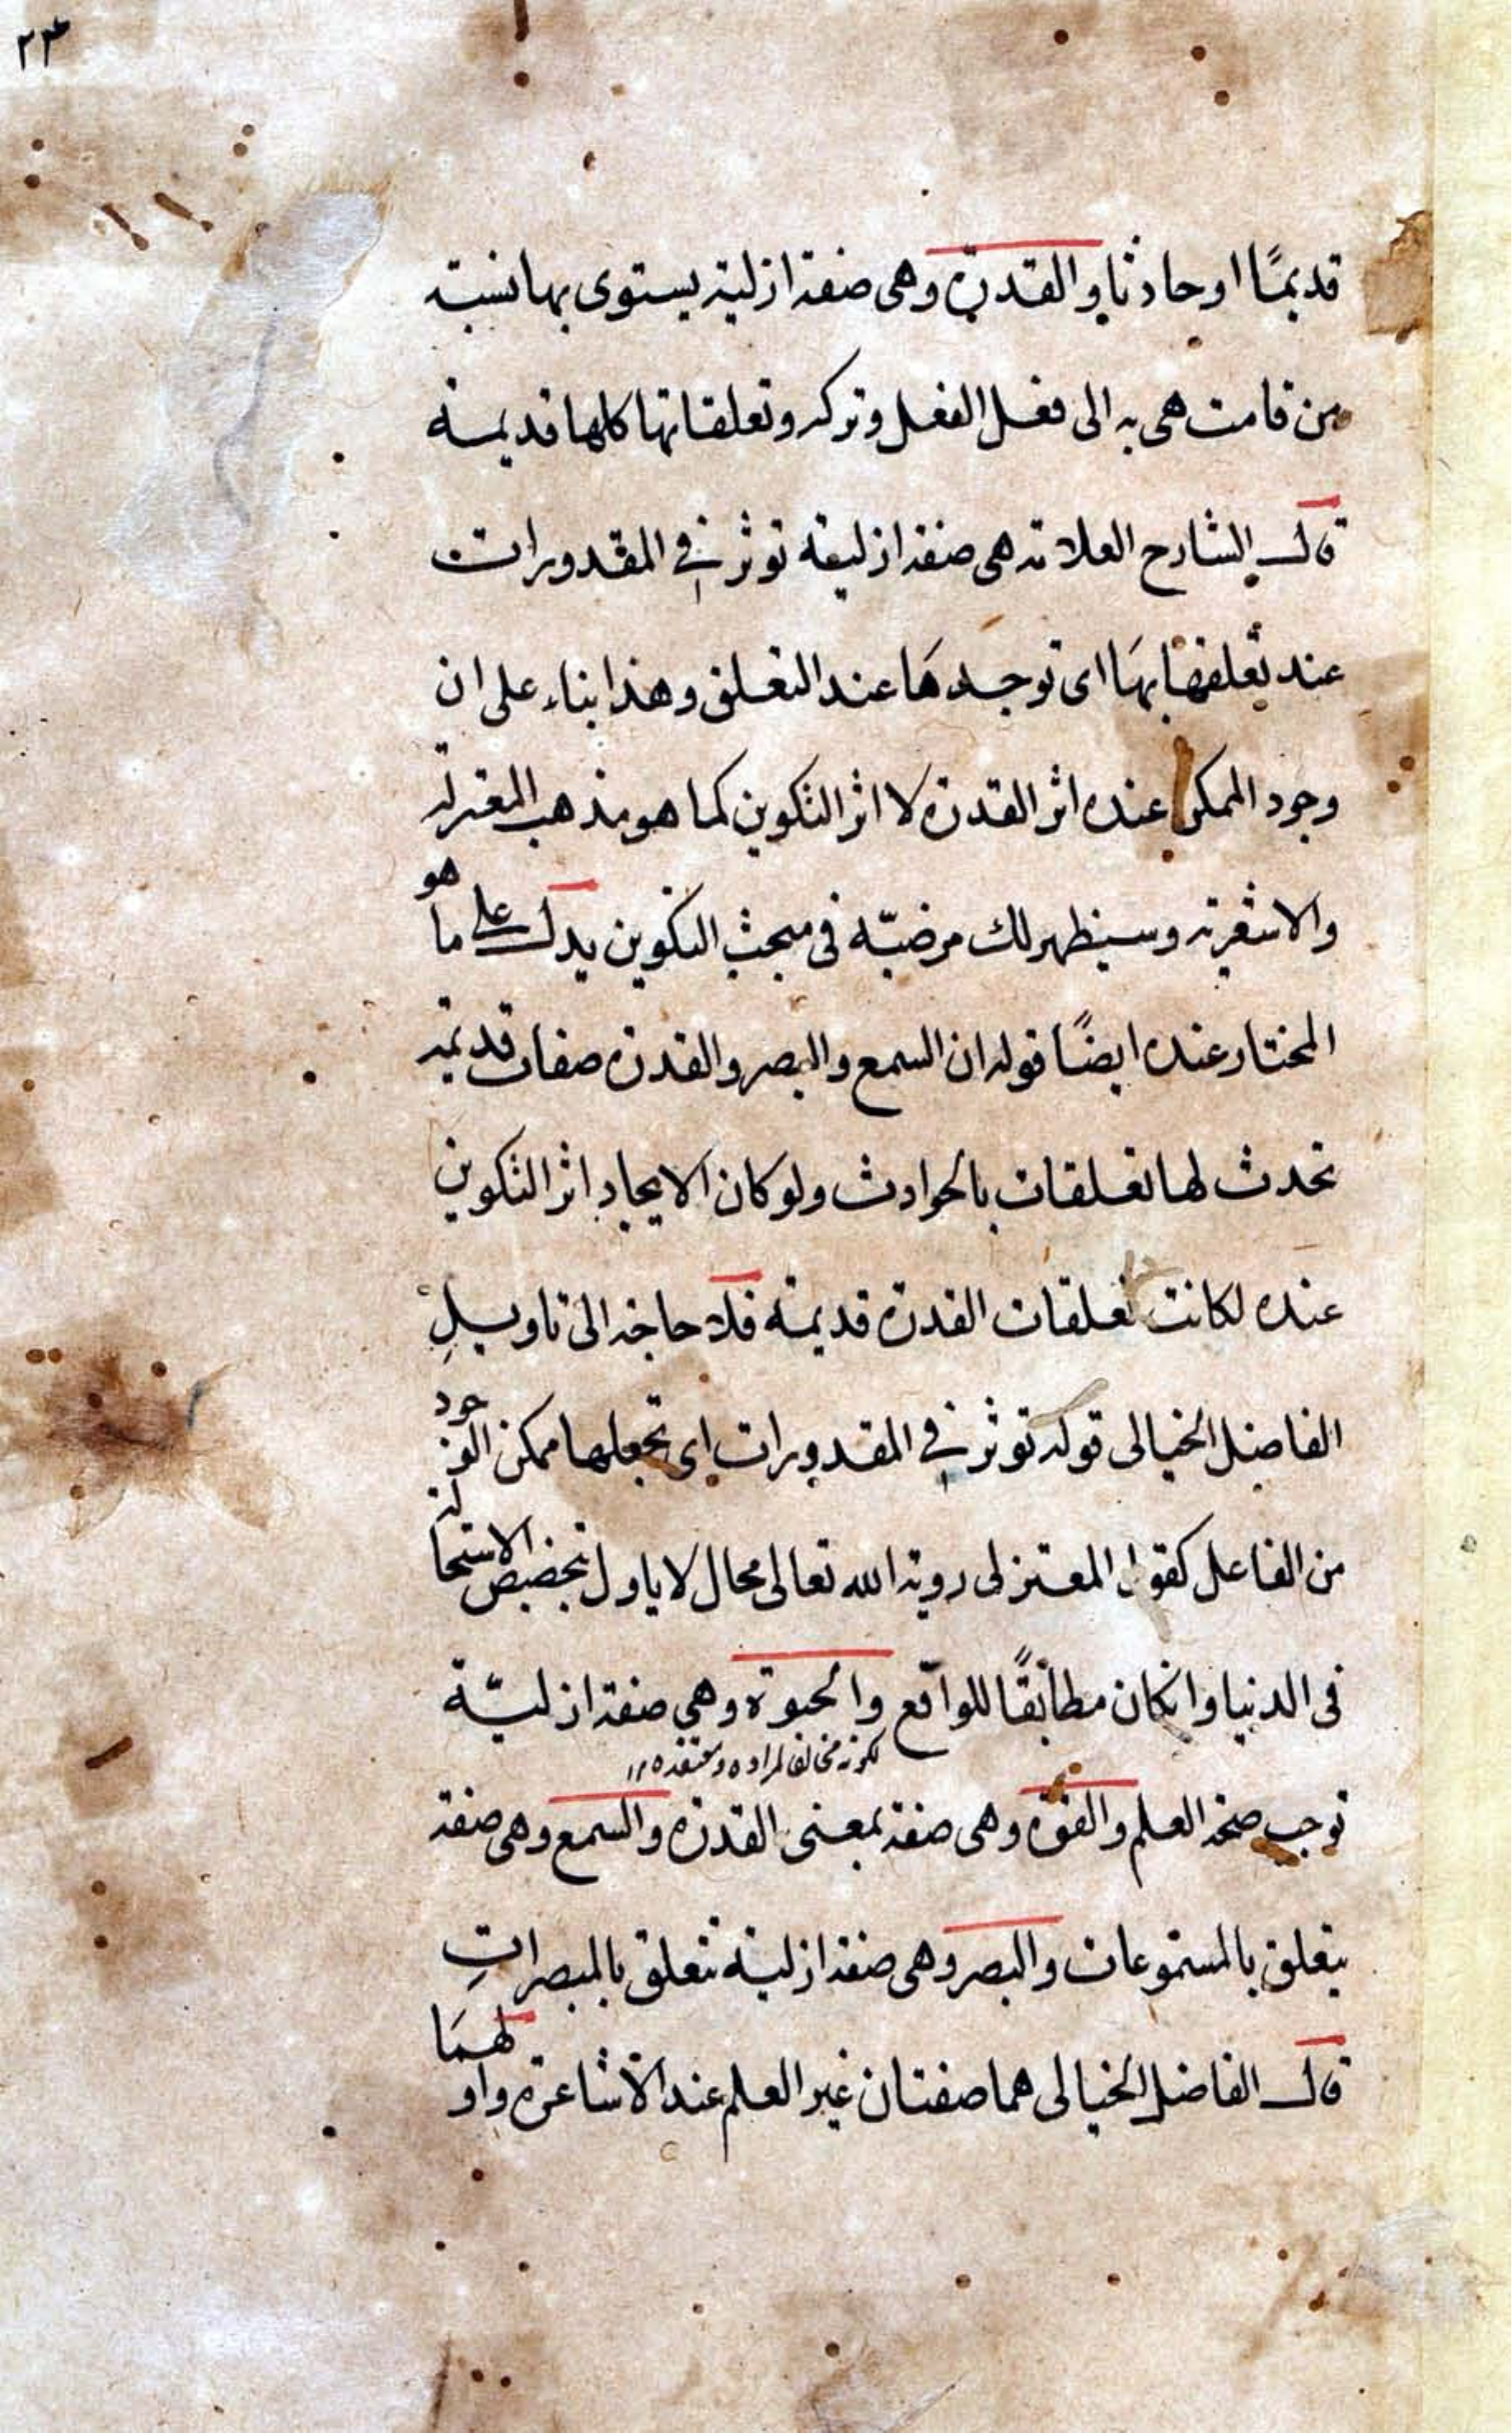 ٢٣
قديمًا او حادثا والقدرة وهى صفة ازلية يستوى بها نسبة
من قامت هى به الى فعل الفعل وتركه وتعلقاتها كلها قديمة
قال الشارح العلامة هى صفة ازلية توثر في المقدورات
عند تعلقها بها اى توجدها عند التعلق وهذا بناء على ان
وجود الممكن عنده اثر القدرة لا اثر التكوين كما هو مذهب المعتزلة
والاشعرية وسيظهر لك مرضيّه فى مبحث التكوين يدل على ما هو
المختار عنده ايضًا قوله ان السمع والبصر والقدرة صفات قديمة
تحدث لها تعلقات بالحوادث ولو كان الايجاد اثر التكوين
عنده لكانت تعلقات القدرة قديمة فلا حاجة الى تاويل
الفاضل الخيالى قوله توثر في المقدورات اى تجعلها ممكن الوجود
من الفاعل كقول المعتزلى روية الله تعالى محال لا ياول بتخصيص الاستحالة
فى الدنيا وانكان مطابقًا للواقع والحيوة وهى صفة ازليّة
لكونه مخالفا لمراده ومعتقده ١٢
توجب صحة العلم والقوة وهى صفة بمعنى القدرة والسمع وهى صفة
يتعلق بالمستموعات والبصر وهى صفة ازلية تتعلق بالمبصرات
قال الفاضل الخيالى هما صفتان غير العلم عند الاشاعرة واولهما